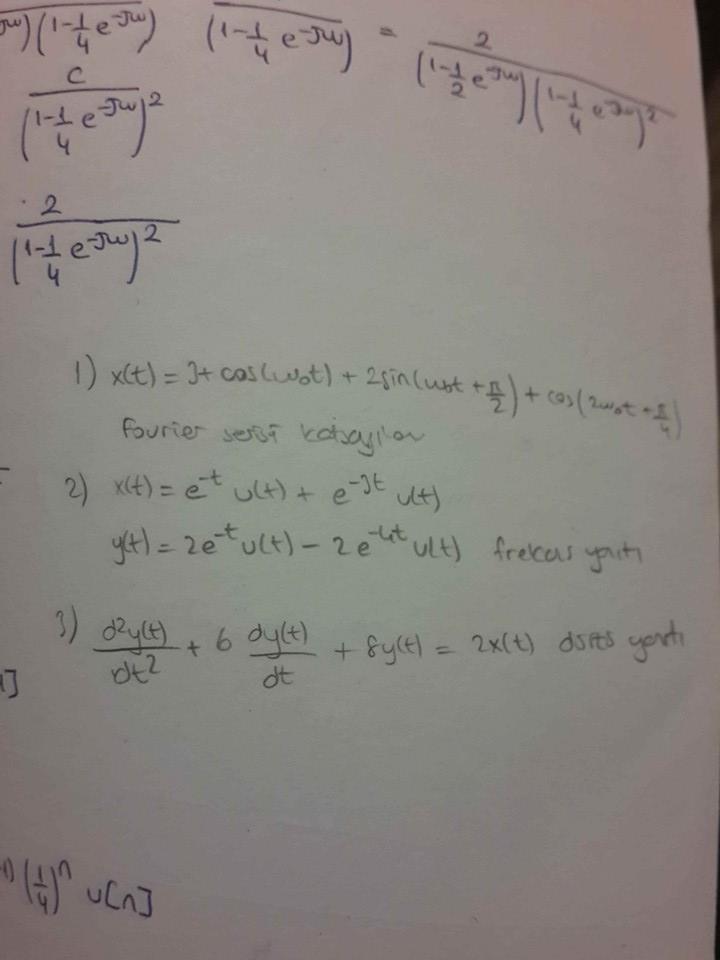 Jω)(1-1/4 e^-Jω) (1-1/4 e^-Jω) = 2/((1-1/2 e^-Jω)(1-1/4 e^-Jω)^2)
C/(1-1/4 e^-Jω)^2
2/(1-1/4 e^-Jω)^2
1) x(t) = 3+ cos(ω₀t) + 2sin(ω₀t + π/2) + cos(2ω₀t + π/4)
fourier serisi katsayıları
2) x(t) = e^-t u(t) + e^-3t u(t)
y(t) = 2e^-t u(t) - 2e^-4t u(t) frekans yanıtı
3) d²y(t)/dt² + 6 dy(t)/dt + 8y(t) = 2x(t) dürtü yanıtı
]
) (1/4)^n u[n]